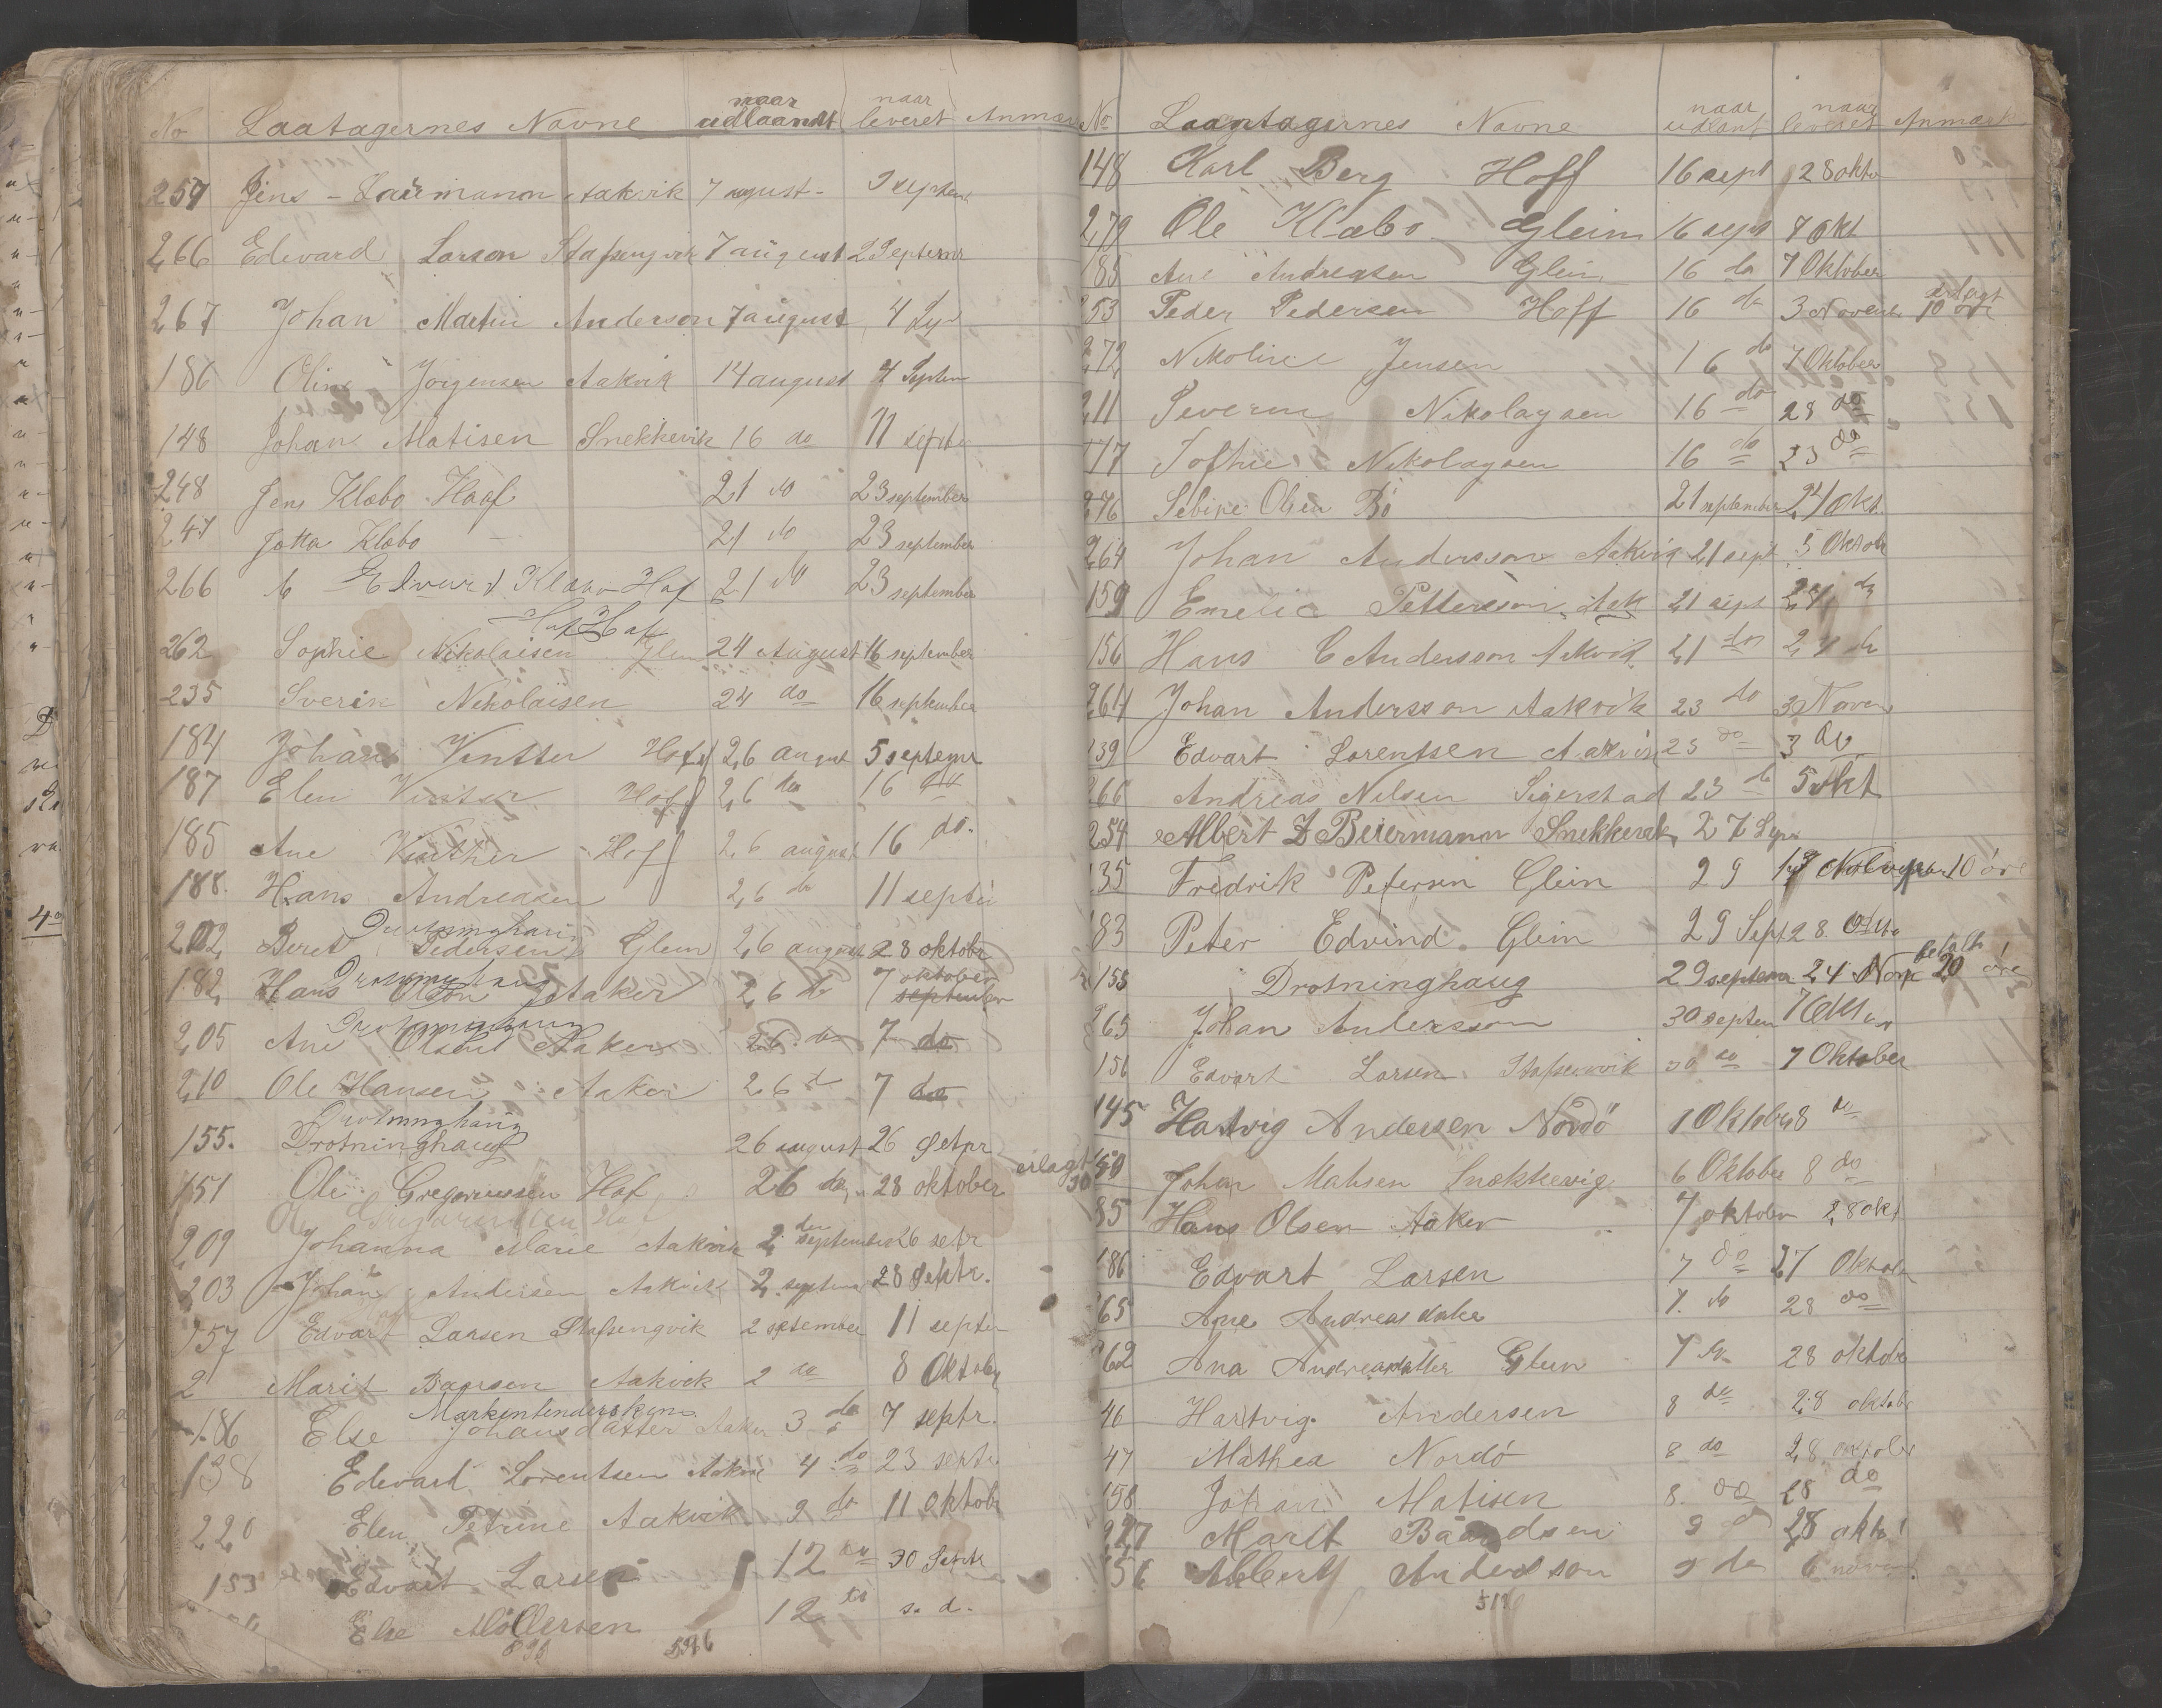 No Laatagernes Navne naar udlaandt naar leveret Anmær
257 Jens - aakvik 7 august - 2 septem
266 Edevard Larson Stafsengvik 7 august 2 Septemr
267 Johan Martin Anderson 7 august 4 Sep
186 Oline Jørgensen Aakvik 14 august 7 Septem
148 Johan Matisen Snekkevik 16 do 11 septe
248 Jens Klæbo Haaf 21 do 23 september
247 Jotta Klæbo 21 do 23 september
266 Edvard Klæbo Hof 21 do 23 september
Hof Hof
262 Sophie Nikolaisen Glen 24 August 16 september
235 Sverin Nikolaisen 24 do 16 september
184 Johan Vintter Hoff 26 august 5 septemr
187 Elen Vinter Hoff 26 do 16 do
185 Ane Vinther Hoff 26 august 16 do.
188. Hans Andreasen 26 do 11 septe
Drotninghaug
202 Beret Pedersen Glein 26 august 28 oktobr
Drotninghaug oktober
182 Hans Olson Aaker 26 do 7 september
Drotninghaug
205 Ane Olsen Aaker 26. do 7 do
210 Ole Hansen Aaker 26 d 7 do
Drotninghaug
155. Drotninghaug 26 august 26 Setpr
151 Ole Gregoriussen Hof 26 do 28 oktober erlagt 30
Ole Gregoriussen Hof
209 Johanna Marie Aakvik 2 den september 26 setr
203 Johan Andersen Aakvik 2. septem 28 Sektr.
257 Edvart Larsen Stafsengvik 2 september 11 septe
2 Marit Baarsen Aakvik 2 do 8 Oktober
Markentendersken
186 Else Johansdatter Aaker 3 do 7 septr.
138 Edevart Lorentsen Aakvik 4 do 23 septe
220 Elen Petrine Aakvik 2 do 11 Oktobr
153 Edvart Larsen 12 do 30 Sept
" Else Möllersen 12 do s. d.
596
No Laantagernes Navne naar udlant naar leveret Anmærk
148 Karl Berg Hoff 16 sept 28 okto
279 Ole Klæbo Glein 16 sept 7 Okt
185 Ane Andreasen Glein 16 do 7 Oktober
253 Peder Pedersen Hoff 16 do 3 Novemb erlagt 10 øre
272 Nikoline Jensen 16 do 7 Oktober
211 Severin Nikolaysen 16 do 28 do
177 Sofhie Nikolaysen 16 do 23 do
276 Olsen Bö 21 september 24 Okt.
264 Johan Andersson Aakvik 21 sept 5 Oktobr
159 Emelie Pettersson Aak 21 sept 24 do
156 Hans C Andersson Aakvik 21 do 24 do
264 Johan Andersson Aakvik 23 do 3 Novem
239 Edvart Lorentsen Aakvik 23 do 3 do
266 Andreas Nilsen Sigerstad 23 do 5 okt
254 Albert D Beiermann Snekkevik 27 Sep
135 Fredrik Petersen Glein 29 17 November 10 öre
83 Peter Edvind Glein 29 Sept 28. Okto
155 Drotninghaug 29 septem 24 Nov betalt 20 öre
265 Johan Andersson 30 septem 7 Oktor
156 Edvart Larsen Stafsenvik 30 do 7 Oktober
145 Hartvig Andersen Nordö 1 Oktober 8 do
150 Johan Matisen Snækkevig 6 Oktober 8 do
85 Hans Olsen Aaker 7 oktober 28 okt
186 Edvart Larsen 7 do 27 Oktober
265 Ane Andreasdater 7. do 28 do
262 Ana Andreasdatter Glein 7 do 28 oktobr
46 Hartvig. Andersen 8 do 28 oktobr
47 Mathea Nordö 8 do 28 oktober
158 Johan Matisen 8. do 28 do
227 Marit Baardsen 8 do 28 okto
156 Albert Anderson 9 do 6 novem